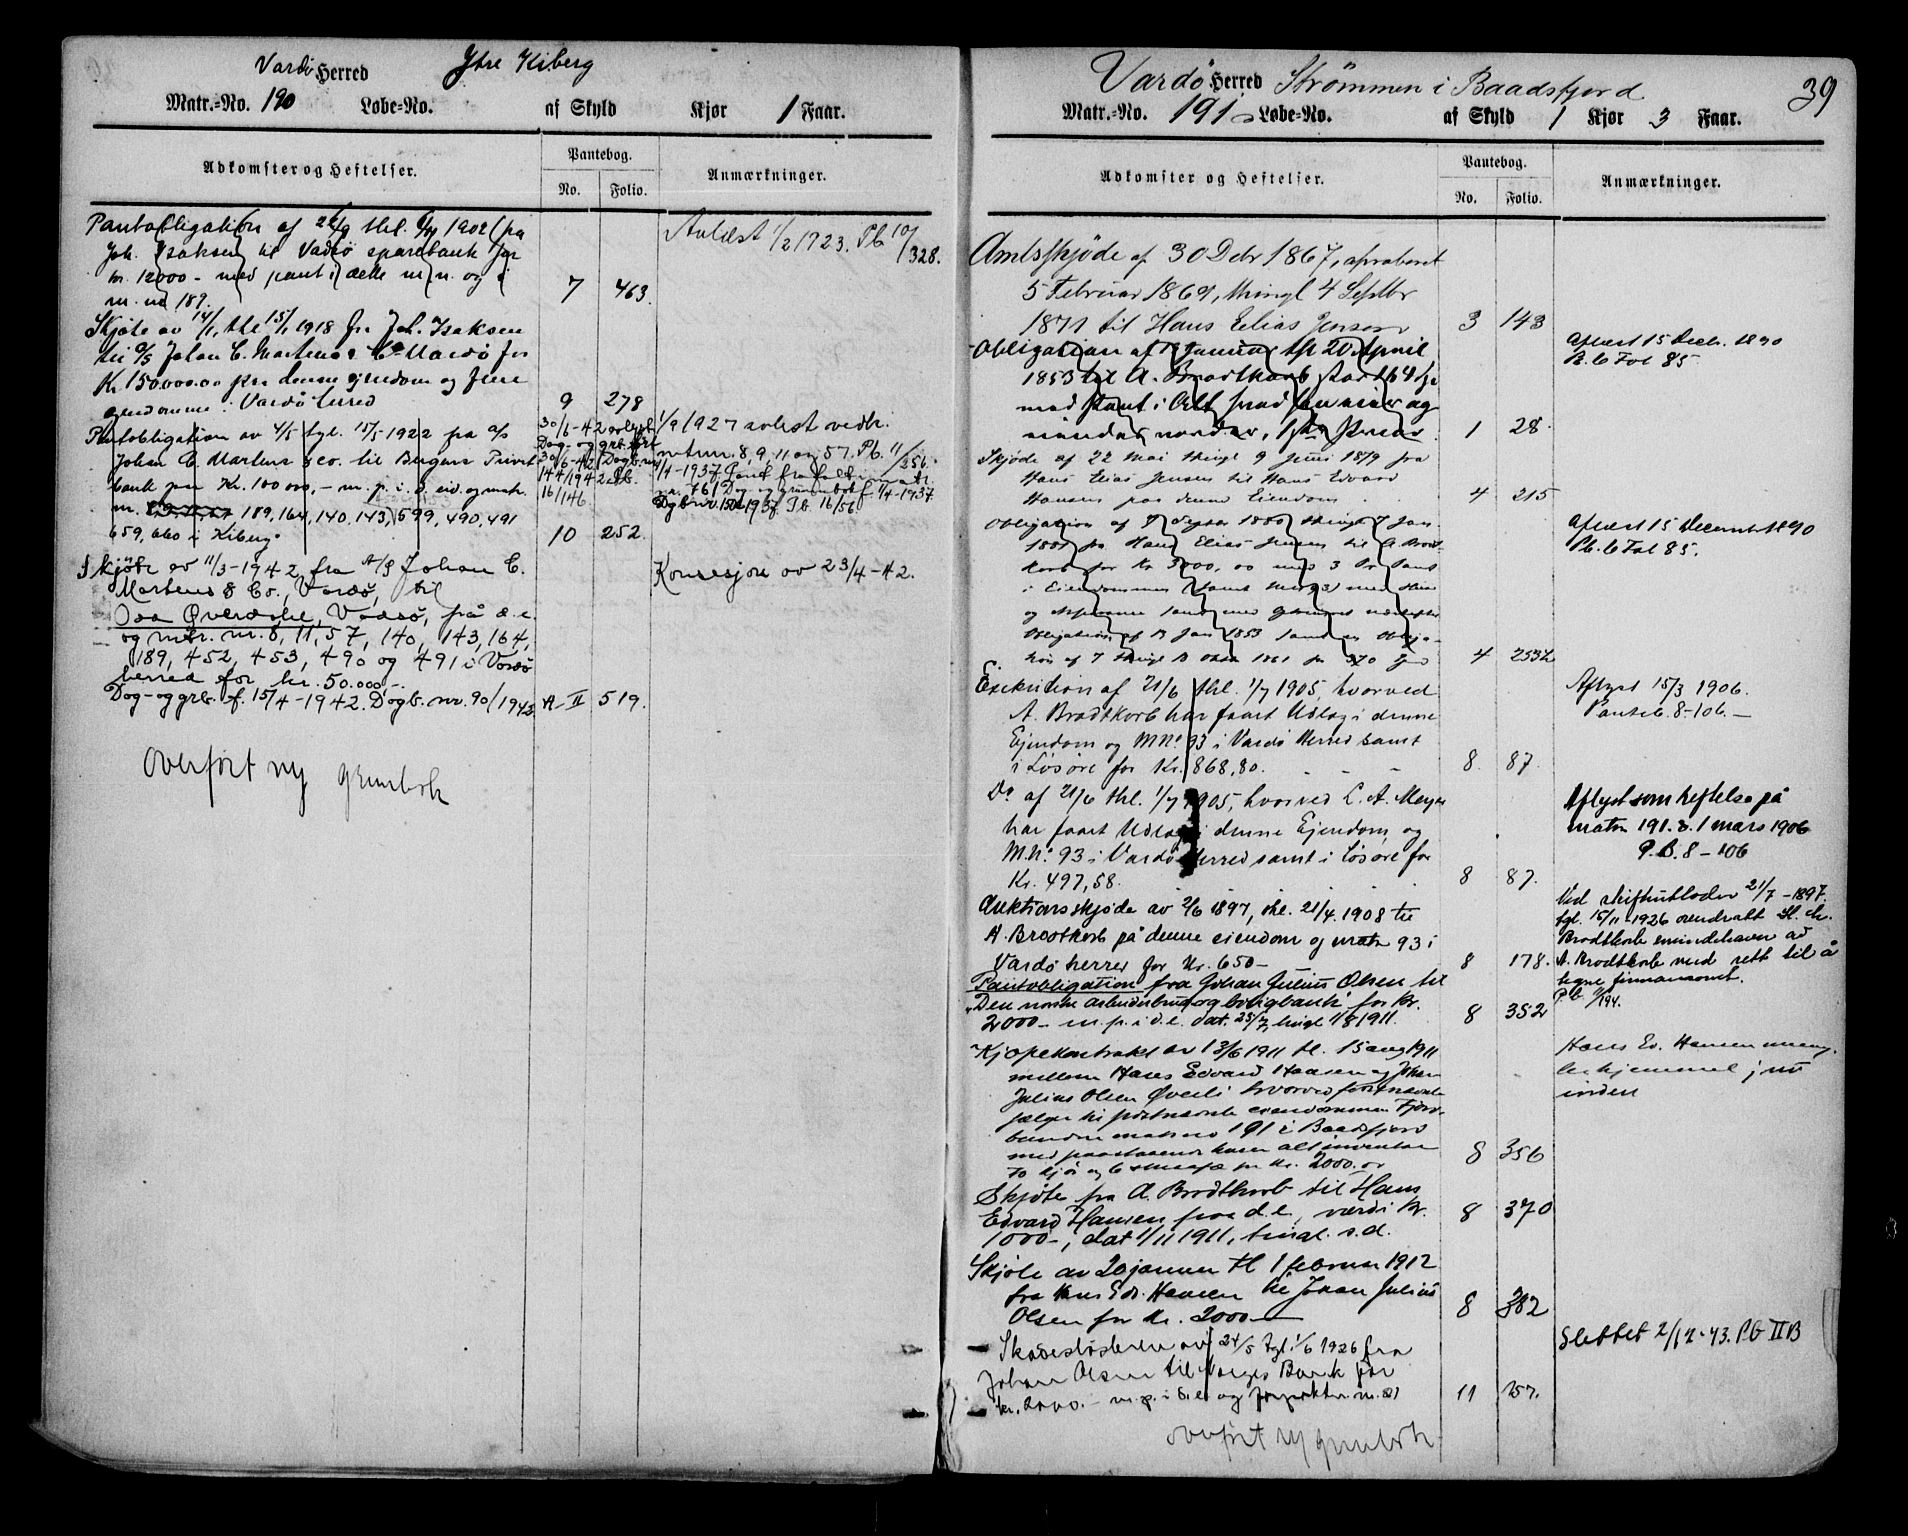 Vardö Herred Ytre Kiberg
Matr.-No. 190 Løbe-No. af Skyld Kjør 1 Faar.
Adkomster og Heftelser.
Pantebog.
No. Folio.
Anmærkninger.
Pantobligation af thl. 1902 fra
Joh. Isaksen til Vadsö sparebank for
kr. 12000 - med pant i dette m. n. og i
m. no 189.
7 463.
Avlæst 1/2 1923. Pb 10/328.
Skjøte av 14/1, thl 15/1 1918 fra Joh. Isaksen
til A/S Johan C. Martens & Co Vardö for
Kr. 150.000.00 paa denne eiendom og flere
eiendomme i Vardö herred
9 278
Pantobligation av 4/5 tgl. 15/5-1922 fra A/S
Johan C. Martens & co. til Bergens Privat
bank for Kr. 100 000,- m. p. i d. eid. og matr.
nr. 189, 164, 140, 143, 599, 490, 491
659, 660 i Kiberg.
10 252.
30/6-42 avlyst
Dag- og grb. ført
30/6-42 Dagb. nr
144/1942 Pb.
16/146
1/9 1927 avlest vedr.
matr. nr. 8, 9, 11 og 57. Pb. 11/356.
1/4-1937 Pant frafalt i matr.
nr. 461 Dag og grundbokf. 1/4-1937
Dgb nr. 1937 Pb 16/56
Skjøte av 11/3-1942 fra A/S Johan C.
Martens & Co., Vardö, til
Øveraske, Vadsö, på d. e.
og matr. nr. 8, 11, 57, 140, 143, 164,
189, 452, 453, 490 og 491 i Vardö
herred for kr. 50.000,-.
Dag- og grb. f. 15/4-1942. Dagb. nr. 90/1942
A-II 519.
Konsesjon av 23/4-42.
Overført ny grunbok
Vardö Herred Strömmen i Baadsfjord 39
Matr.-No. 191 Løbe-No. af Skyld 1 Kjør 3 Faar.
Adkomster og Heftelser.
Pantebog.
No. Folio.
Anmærkninger.
Amtsskjöde af 30 Debr 1867, aproberet
5 Februar 1869, thingl 4 Septbr
1871 til Hans Elias Jensen
3 143
Obligation af 13 Januar thl 20 April
1853 til A. Brodtkorb stort 64
med Pant i Alt hvad han eier og
eiendes vorder, 1ste Prior.
1 28.
Aflæst 15 Decb. 1890
B. 6 Fol 85.
Skjøde af 22 Mai thingl 9 Juni 1879 fra
Hans Elias Jensen til Hans Edvard
Hansen paa denne Eiendom
4 215
Obligation af 9 Septbr 1880 thingl 7 Jan
1881 fra Hans Elias Jensen til A. Brodt-
korb for Kr 3000,00 med 3 Pr. Pant
i Eiendommen samt med
Obligation af 13 Jan 1853 samt en Obliga-
tion af 7 thingl 13 1861 for 370
4 253
Aflæst 15 Decembr 1890
Pb. 6 Fol 85.
Exekution af 21/6 thl. 1/7 1905, hvorved
A. Brodtkorb har faaet Udlæg i denne
Ejendom og M.No 93 i Vardö Herred samt
i Løsøre for Kr. 868,80.
8. 87.
Aflyst 15/3 1906.
Panteb. 8-106.-
Do af 21/6 thl. 1/7 1905, hvorved L. A. Meyer
har faaet Udlæg i denne Ejendom og
M.No. 93 i Vardö Herred samt i Løsøre for
Kr. 497,58.
8 87.
Aflyst som heftelse på
matr 191. d. 1 mars 1906
P. B. 8-106
Auktionsskjøde av 2/6 1897, thl. 21/4. 1908 til
A. Brodtkorb på denne eiendom og matr 93 i
Vardö herred for Kr. 650-
8 178.
Ved skifteutlodn 21/7-1897.
tgl. 15/11-1926 overdratt
Brodtkorb
A. Brodtkorb med rett til å
tegne firmanavnet.
P.b. 194.
Pantobligation fra Johan Julius Olsen til
"Den norske arbeiderbruk og boligbank" for kr.
2000- m. p. i d. e. dat. 25/7, tingl 1/8 1911.
8 352
Kjøpekontrakt av 13/6 1911 tl. 15 aug 1911
mellem Hans Edvard Hansen og Johan
Julius Olsen Øveili hvorved førstnævnte
sælger til sistnævnte eiendommen Fjord-
bunden matr no 191 i Baadsfjord
med paastaaende huser alt inventar
to kjör og 6 for kr. 2000.00
8 356
Hans Ed. Hansen mang-
ler hjemmel; nu
inden
Skjøte fra A. Brodtkorb til Hans
Edvard Hansen paa d. e., værdi kr.
1000-, dat 1/11 1911, tingl. s.d.
8 370
Skjøte av 20 januar tl 1 februar 1912
fra Hans Edv. Hansen til Johan Julius
Olsen for kr. 2000-
8 382
Skadesløsbrev av 24/5 tgl. 1/6 1926 fra
Johan Olsen til Norges Bank for
kr. 2000.- m. p. i d. e. og
11 157.
Slettet 2/12-43. Pb II B
overført ny grunbok